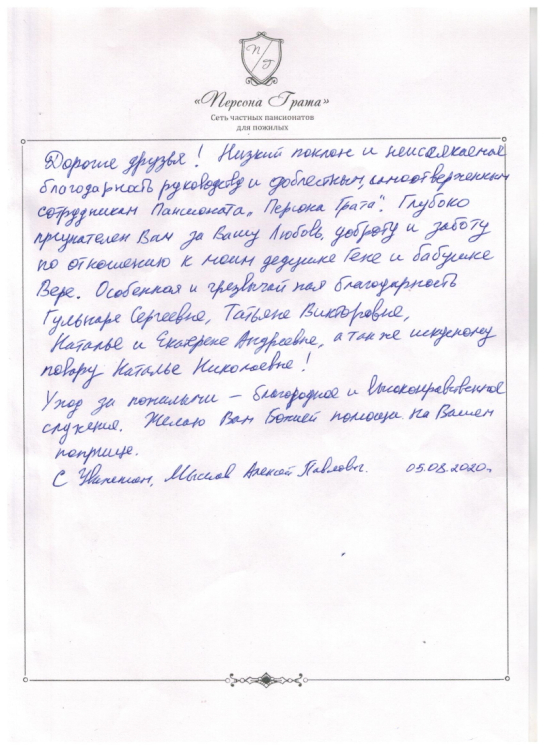 П/Г
«Персона Грата»
Сеть частных пансионатов
для пожилых
Дорогие друзья! Низкий поклон и неиссякаемая
благодарность руководству и доблестным, самоотверженным
сотрудникам Пансионата „Персона Грата". Глубоко
признателен Вам за Вашу Любовь, доброту и заботу
по отношению к моим дедушке Гене и бабушке
Вере. Особенная и чрезвычайная благодарность
Гульнаре Сергеевне, Татьяне Викторовне,
Наталье и Екатерине Андреевне, а также искусному
повару Наталье Николаевне!
Уход за пожилыми – благородное и высоконравственное
служение. Желаю Вам Божией помощи на Вашем
поприще.
С Уважением, Алексей Павлович. 05.08.2020г.